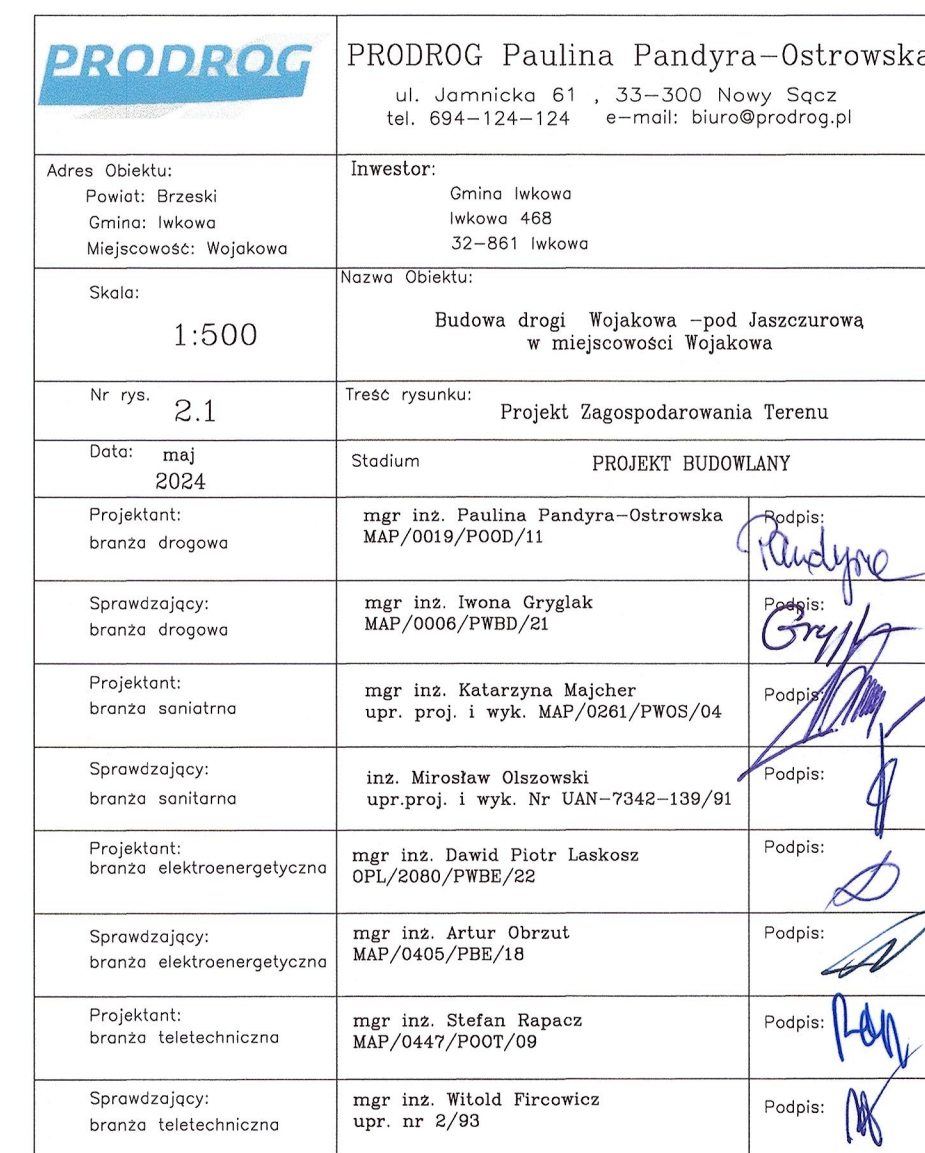 PRODROG
PRODROG Paulina Pandyra-Ostrowska
ul. Jamnicka 61 , 33-300 Nowy Sącz
tel. 694-124-124 e-mail: biuro@prodrog.pl
Adres Obiektu:
Powiat: Brzeski
Gmina: Iwkowa
Miejscowość: Wojakowa
Inwestor:
Gmina Iwkowa
Iwkowa 468
32-861 Iwkowa
Skala:
1:500
Nazwa Obiektu:
Budowa drogi Wojakowa -pod Jaszczurową
w miejscowości Wojakowa
Nr rys.
2.1
Treść rysunku:
Projekt Zagospodarowania Terenu
Data: maj
2024
Stadium PROJEKT BUDOWLANY
Projektant:
branża drogowa
mgr inż. Paulina Pandyra-Ostrowska
MAP/0019/POOD/11
Podpis:
Pandyra
Sprawdzający:
branża drogowa
mgr inż. Iwona Gryglak
MAP/0006/PWBD/21
Podpis:
Projektant:
branża saniatrna
mgr inż. Katarzyna Majcher
upr. proj. i wyk. MAP/0261/PWOS/04
Podpis:
Sprawdzający:
branża sanitarna
inż. Mirosław Olszowski
upr.proj. i wyk. Nr UAN-7342-139/91
Podpis:
Projektant:
branża elektroenergetyczna
mgr inż. Dawid Piotr Laskosz
OPL/2080/PWBE/22
Podpis:
Sprawdzający:
branża elektroenergetyczna
mgr inż. Artur Obrzut
MAP/0405/PBE/18
Podpis:
Projektant:
branża teletechniczna
mgr inż. Stefan Rapacz
MAP/0447/POOT/09
Podpis:
Sprawdzający:
branża teletechniczna
mgr inż. Witold Fircowicz
upr. nr 2/93
Podpis: